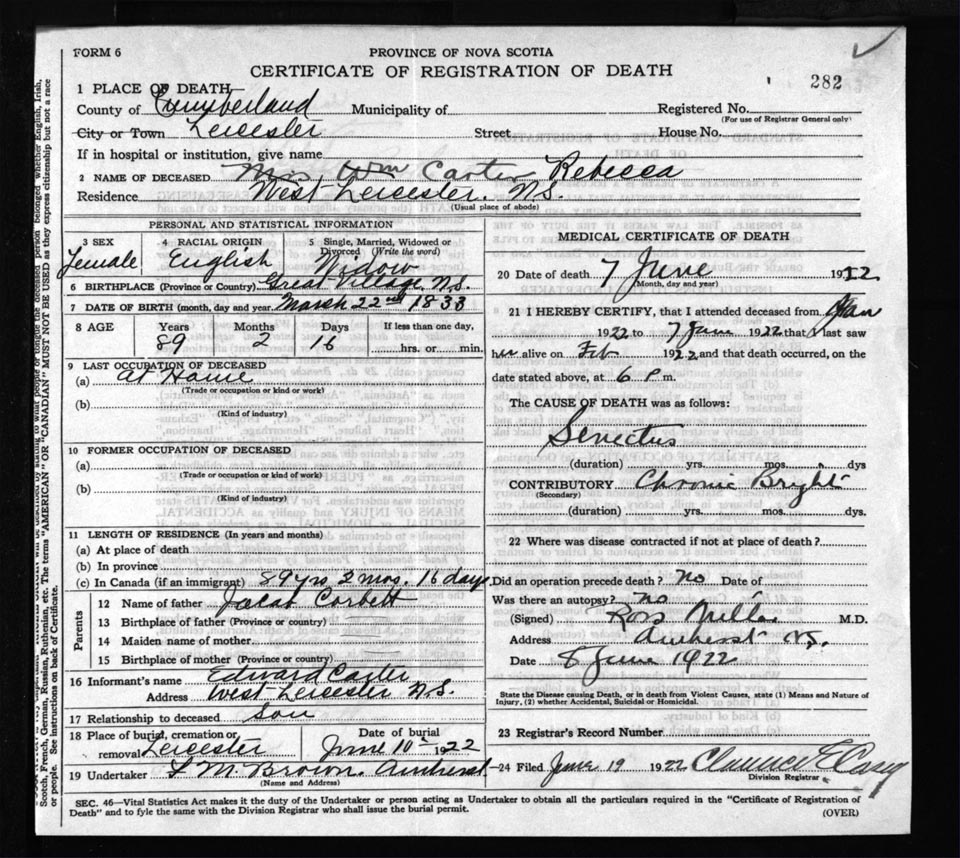 FORM 6
PROVINCE OF NOVA SCOTIA
CERTIFICATE OF REGISTRATION OF DEATH
282
1 PLACE OF DEATH
County of Cumberland Municipality of Registered No.
(For use of Registrar General only)
City or Town Leicester Street House No.
If in hospital or institution, give name
2 NAME OF DECEASED Mrs Wm Carter Rebecca
Residence West Leicester. N.S.
(Usual place of abode)
PERSONAL AND STATISTICAL INFORMATION
3 SEX Female
4 RACIAL ORIGIN English
5 Single, Married, Widowed or Divorced (Write the word) Widow
6 BIRTHPLACE (Province or Country) Great Village N.S.
7 DATE OF BIRTH (month, day and year) March 22nd 1833
8 AGE Years Months Days If less than one day,
89 2 16 hrs. or min.
9 LAST OCCUPATION OF DECEASED
(a) At Home
(Trade or occupation or kind or work)
(b)
(Kind of industry)
10 FORMER OCCUPATION OF DECEASED
(a)
(Trade or occupation or kind or work)
(b)
(Kind of industry)
11 LENGTH OF RESIDENCE (In years and months)
(a) At place of death
(b) In province
(c) In Canada (if an immigrant) 89 yrs 2 mos. 16 days
Parents
12 Name of father Jacob Corbett
13 Birthplace of father (Province or country)
14 Maiden name of mother
15 Birthplace of mother (Province or country)
16 Informant's name Edward Carter
Address West Leicester N.S.
17 Relationship to deceased son
18 Place of burial, cremation or removal Leicester
Date of burial June 10 1922
19 Undertaker F M Brown. Amherst
(Name and Address)
MEDICAL CERTIFICATE OF DEATH
20 Date of death 7 June 1922
(Month, day and year)
21 I HEREBY CERTIFY, that I attended deceased from Jan
1922 to 7 June 1922 that I last saw
her alive on Feb 1922 and that death occurred, on the
date stated above, at 6 P. m.
The CAUSE OF DEATH was as follows:
Senectus
(duration) yrs. mos. dys
CONTRIBUTORY Chronic Brights
(Secondary)
(duration) yrs. mos. dys.
22 Where was disease contracted if not at place of death?
Did an operation precede death? No Date of
Was there an autopsy? no
(Signed) Ross Millar M.D.
Address Amherst N.S.
Date 8 June 1922
State the Disease causing Death, or in death from Violent Causes, state (1) Means and Nature of
Injury, (2) whether Accidental, Suicidal or Homicidal.
23 Registrar's Record Number
24 Filed June 19 1922 Clarence E Casey
Division Registrar
SEC. 46—Vital Statistics Act makes it the duty of the Undertaker or person acting as Undertaker to obtain all the particulars required in the "Certificate of Registration of
Death" and to fyle the same with the Division Registrar who shall issue the burial permit.
(OVER)